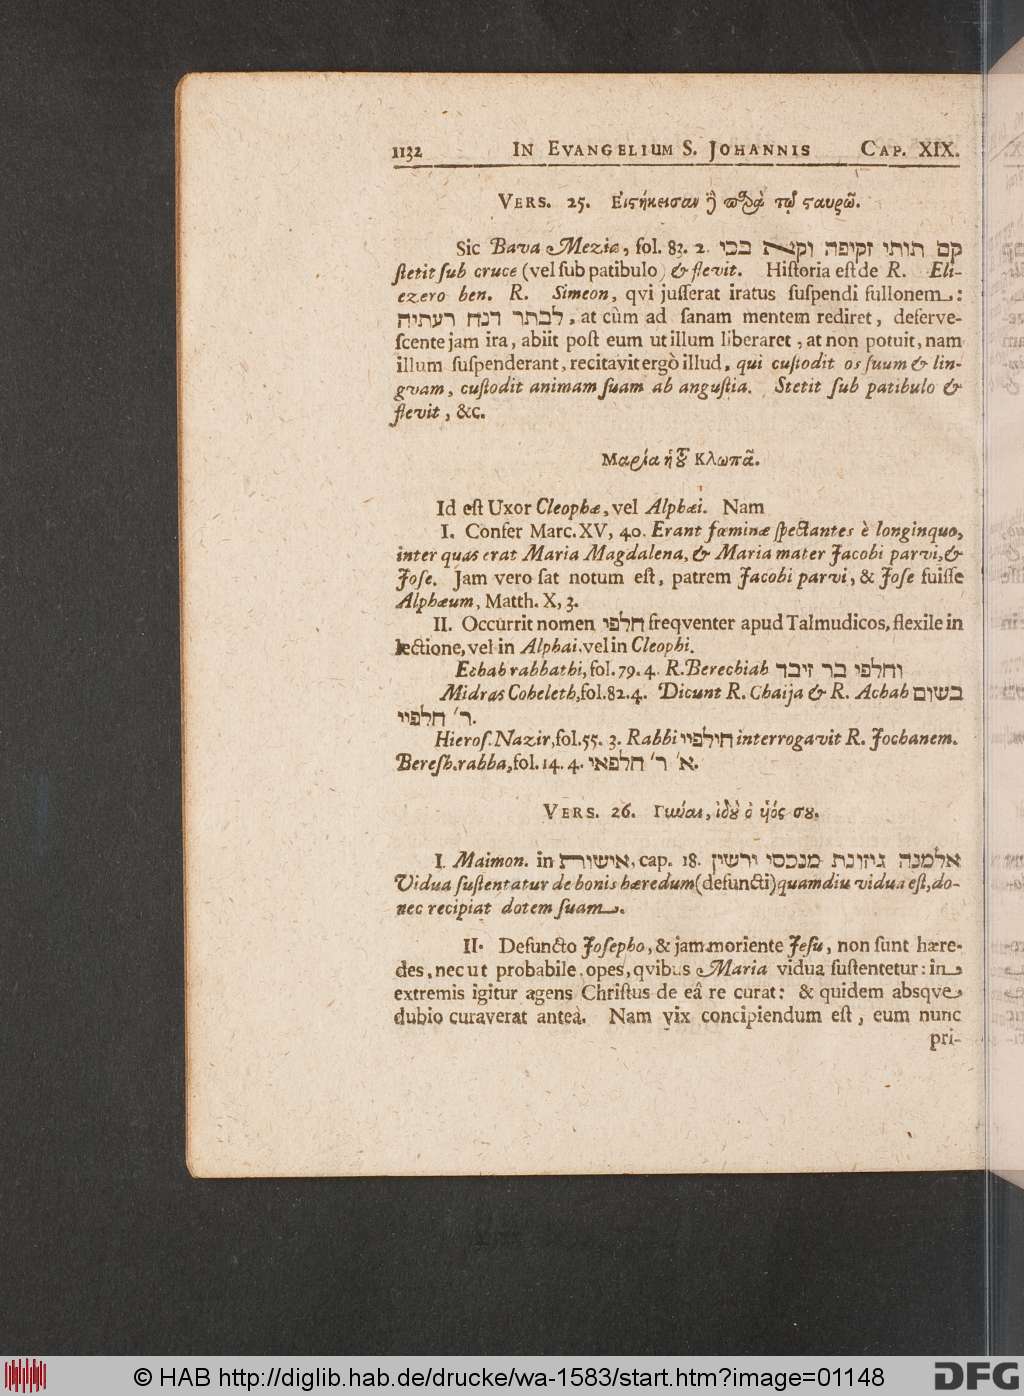 1132 IN EVANGELIUM S. JOHANNIS CAP. XIX.
VERS. 25. Εἱστήκεισαν ἢ παρὰ τῷ σταυρῷ.
Sic Bava Meziæ, fol. 83. 2. קם תותי זקיפה וקא בכי
stetit sub cruce (vel sub patibulo) & flevit. Historia est de R. Eli-
ezero ben. R. Simeon, qvi jusserat iratus suspendi fullonem:
לבתר דנח רעתיה, at cùm ad sanam mentem rediret, deserve-
scente jam ira, abiit post eum ut illum liberaret, at non potuit, nam
illum suspenderant, recitavit ergò illud, qui custodit os suum & lin-
gvam, custodit animam suam ab angustia. Stetit sub patibulo &
flevit, &c.
Μαρία ἡ τοῦ Κλωπᾶ.
Id est Uxor Cleophæ, vel Alphæi. Nam
I. Confer Marc. XV, 40. Erant fœminæ spectantes è longinquo,
inter quas erat Maria Magdalena, & Maria mater Jacobi parvi, &
Jose. Jam vero sat notum est, patrem Jacobi parvi, & Jose fuisse
Alphæum, Matth. X, 3.
II. Occurrit nomen חלפי freqventer apud Talmudicos, flexile in
lectione, vel in Alphai. vel in Cleophi.
Echah rabbathi, fol. 79. 4. R. Berechiah וחלפי בר זיבד
Midras Coheleth, fol. 82. 4. Dicunt R. Chaija & R. Achah בשום
ר׳ חלפיי.
Hieros. Nazir, fol. 55. 3. Rabbi חילפיי interrogavit R. Jochanem.
Beresh. rabba, fol. 14. 4. א׳ ר׳ חלפאי.
VERS. 26. Γύναι, ἰδοὺ ὁ υἱός σου.
I. Maimon. in אישורת, cap. 18. אלמנה ניזונת מנכסי ורשין
Vidua sustentatur de bonis hæredum (defuncti) quamdiu vidua est, do-
nec recipiat dotem suam.
II. Defuncto Josepho, & jam moriente Jesu, non sunt hære-
des, nec ut probabile, opes, qvibus Maria vidua sustentetur: in
extremis igitur agens Christus de eâ re curat: & quidem absqve
dubio curaverat anteà. Nam vix concipiendum est, eum nunc
pri-
© HAB http://diglib.hab.de/drucke/wa-1583/start.htm?image=01148 DFG